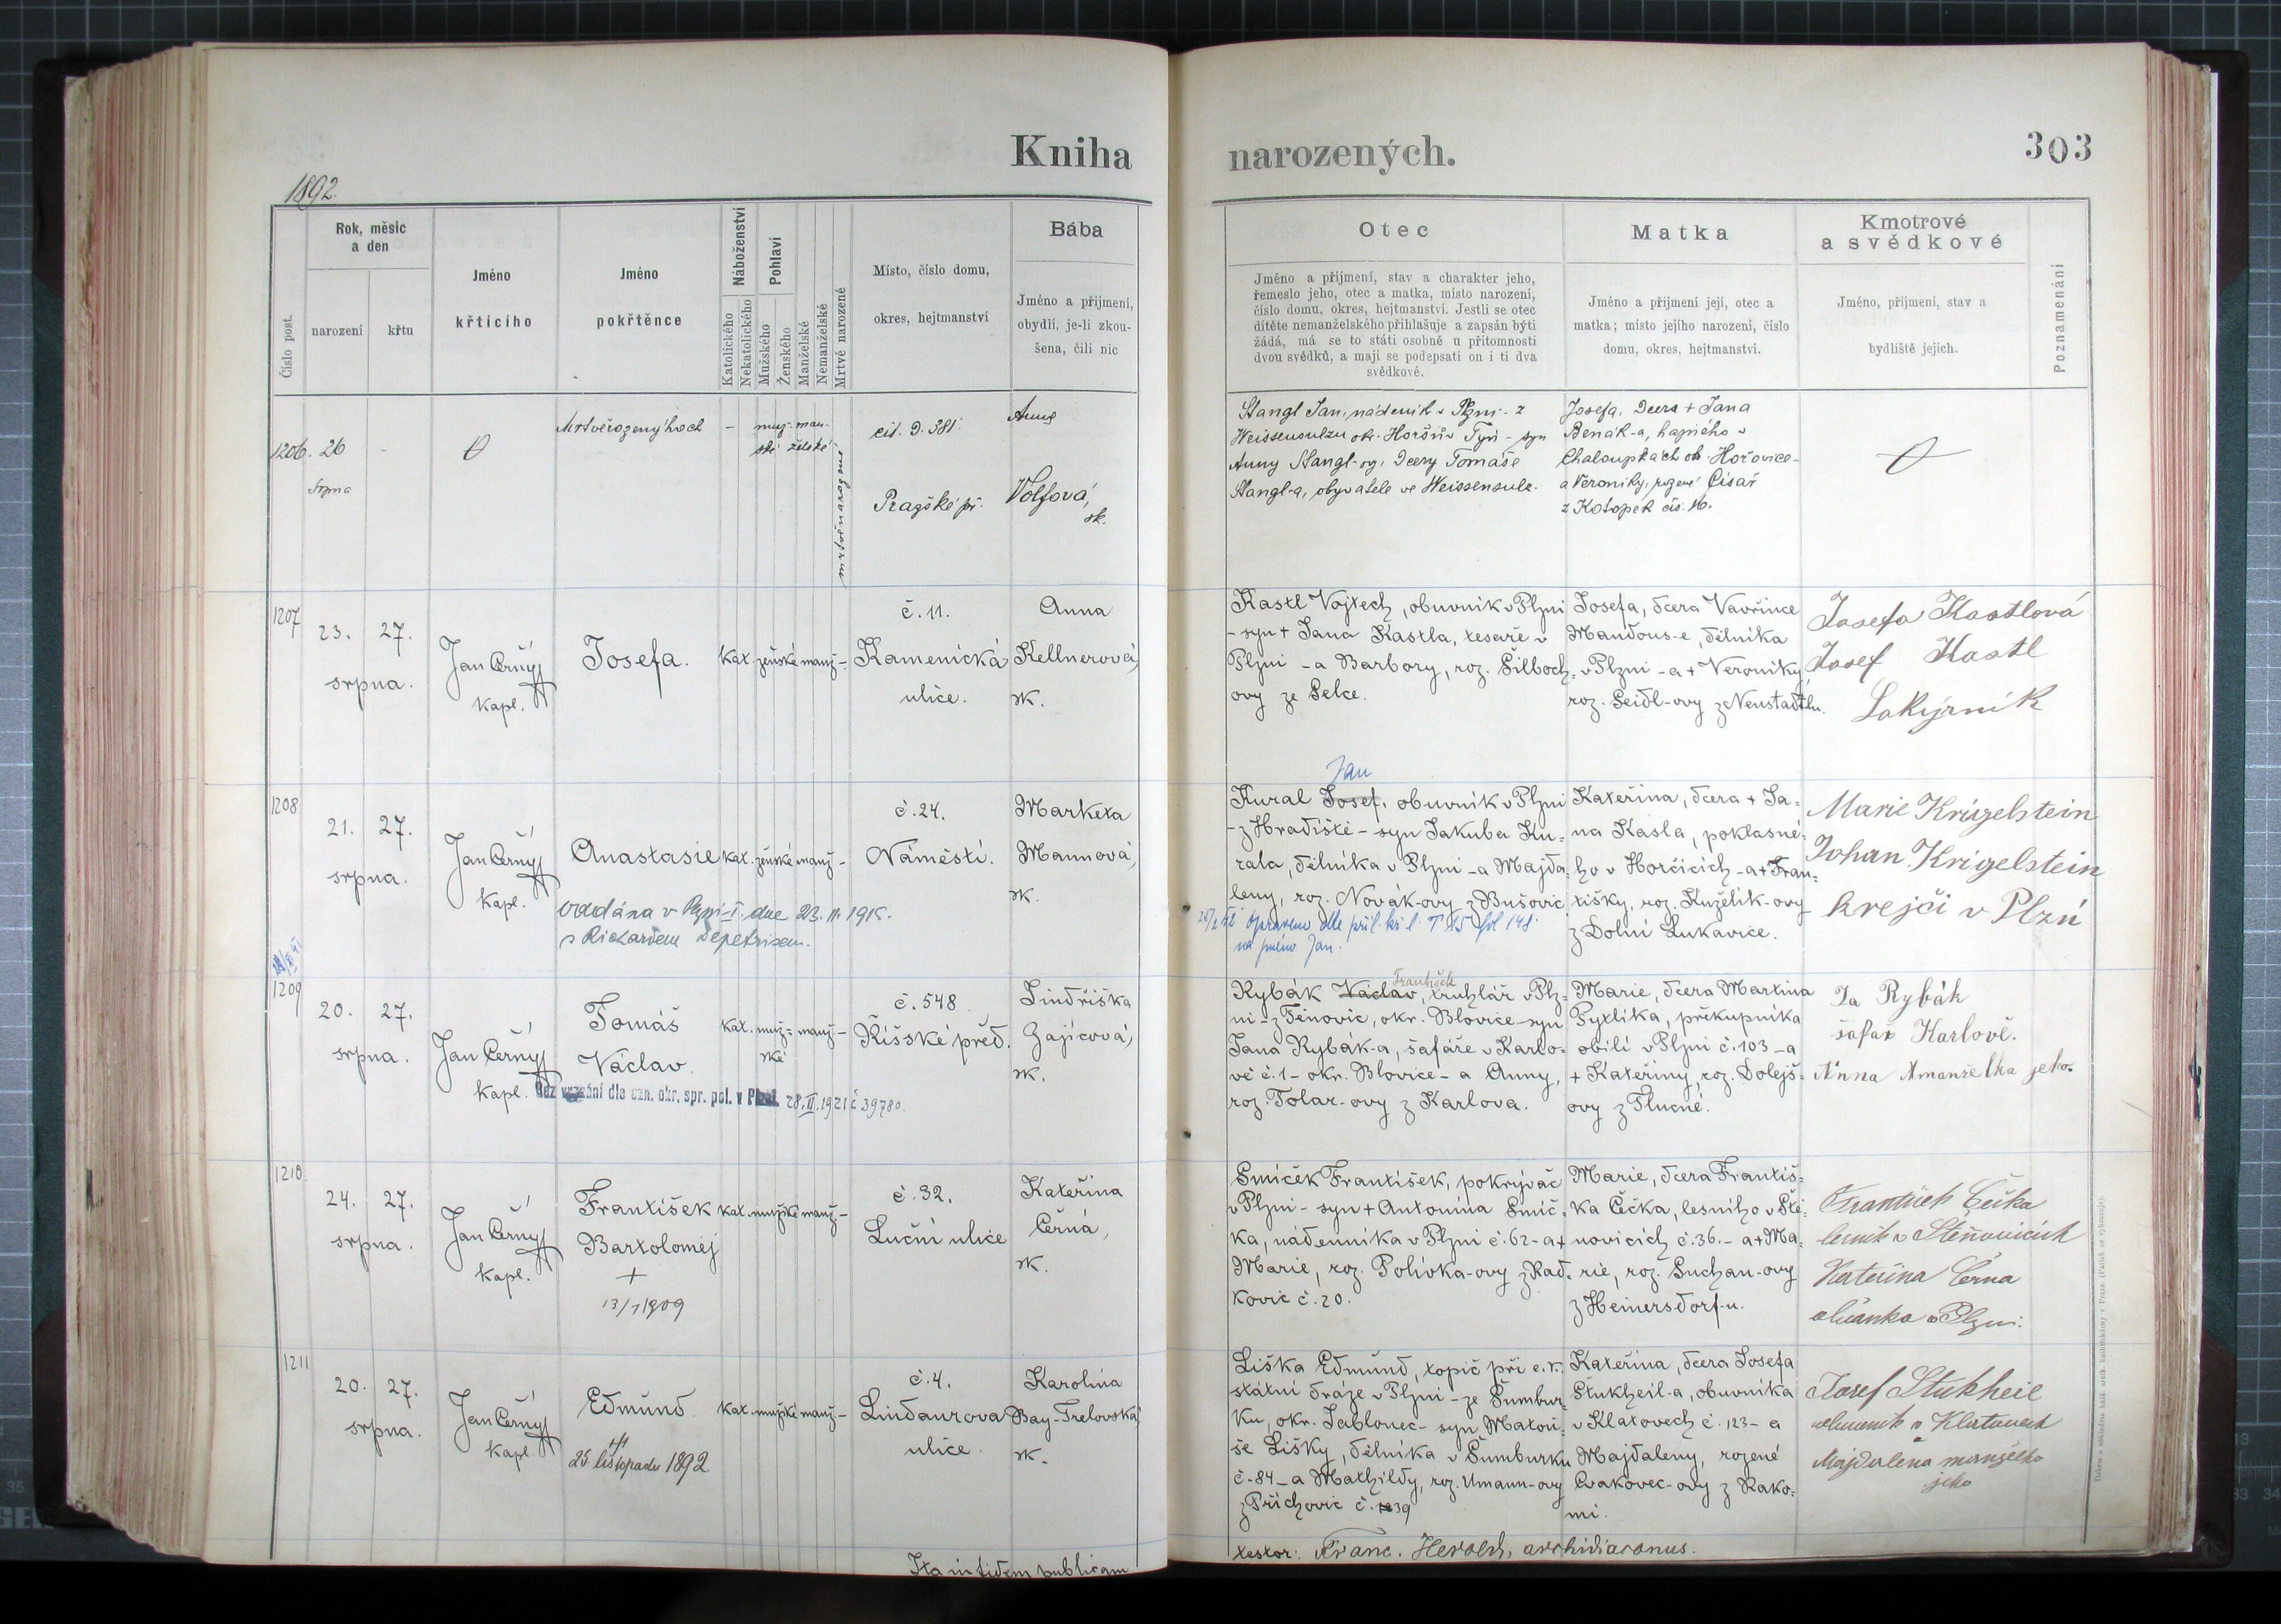 Kniha
narozených.
303
1892.
Číslo post.
Rok, měsíc
a den
narození
křtu
Jméno
křtícího
Jméno
pokřtěnce
Náboženství
Katolického
Nekatolického
Pohlaví
Mužského
Ženského
Manželské
Nemanželské
Mrtvě narozené
Místo, číslo domu,
okres, hejtmanství
Bába
Jméno a příjmení,
obydlí, je-li zkou-
šena, čili nic
Otec
Jméno a příjmení, stav a charakter jeho,
řemeslo jeho, otec a matka, místo narození,
číslo domu, okres, hejtmanství. Jestli se otec
dítěte nemanželského přihlašuje a zapsán býti
žádá, má se to státi osobně u přítomnosti
dvou svědků, a mají se podepsati on i ti dva
svědkové.
Matka
Jméno a příjmení její, otec a
matka; místo jejího narození, číslo
domu, okres, hejtmanství.
Kmotrové
a svědkové
Jméno, příjmení, stav a
bydliště jejich.
Poznamenání
1206. 26 -
srpna
Mrtvěrozený hoch
-
muž- man-
ské želské
mrtvěnarozené
čís. D. 381.
Pražské př.
Anna
Volfová,
zk.
Stangl Jan, nádeník v Plzni - z
Weissensulzu okr. Horšův Týn - syn
Anny Stangl-ovy, dcery Tomáše
Stangl-a, obyvatele ve Weissensulz.
Josefa, dcera + Jana
Benák-a, hajného v
Chaloupkách ok. Hořovice -
a Veroniky, rozené Císař
z Kotopek čís. 16.
1207
23. 27.
srpna.
Jan Černý
kapl.
Josefa.
kat. ženské manž -
č. 11.
Kamenická
ulice.
Anna
Kellnerová,
zk.
Kastl Vojtech, obuvník v Plzni
- syn + Jana Kastla, tesaře v
Plzni - a Barbory, roz. Šilboch-
ovy ze Selce.
Josefa, dcera Vavřince
Mandous-e, dělníka
v Plzni - a + Veroniky
roz. Seidl-ovy z Neustadtlu.
Josefa Kastlová
Josef Kastl
Lakýrník
1208
21. 27.
srpna.
Jan Černý
kapl.
Anastasie
kat. ženské manž -
oddána v Plzni-I. dne 23. 11. 1915.
s Richardem Depetrisem.
č. 24.
Náměstí.
Marketa
Mannová,
zk.
Jan
Kural Josef, obuvník v Plzni
- z Hradiště - syn Jakuba Ku-
rala, dělníka v Plzni - a Majda-
leny, roz. Novák-ovy z Bušovic
Opraveno dle příl. kř. l. T 15 fol 148
na jméno Jan.
Kateřina, dcera + Ja-
na Kasla, poklasné-
ho v Horčicích - a + Fran-
tišky, roz. Kuželík-ovy
z Dolní Lukavice.
Marie Krügelstein
Johan Krigelstein
krejčí v Plzń
1209
20. 27.
srpna.
Jan Černý
kapl.
Tomáš
Václav.
kat. muž- manž -
ské
Bez vyznání dle ozn. okr. spr. pol. v Plzni. 28. II. 1921 č 39780.
č. 548
Říšské před.
Jindřiška
Zajícová,
zk.
František
Rybák Václav, truhlář v Plz-
ni - z Těnovic, okr. Blovice - syn
Jana Rybák-a, šafáře v Karlo-
vě č. 1 - okr. Blovice - a Anny,
roz. Tolar-ovy z Karlova.
Marie, dcera Martina
Pytlíka, překupníka
obilí v Plzni č. 103 - a
+ Kateřiny, roz. Dolejš-
ovy z Tlucné.
Ja Rybák
šafař Karlově.
Anna Amanželka jeho.
1210
24. 27.
srpna.
Jan Černý
kapl.
František
Bartoloměj
+
13/1 1909
kat. mužské manž -
č. 32.
Luční ulice
Kateřina
Černá,
zk.
Smíček František, pokrývač
v Plzni - syn + Antonína Smíč-
ka, nádenníka v Plzni č. 62 - a +
Marie, roz. Polívka-ovy z Rad-
kovic č. 20.
Marie, dcera Františ-
ka Čečka, lesního v Ště-
novicích č. 36. - a + Ma-
rie, roz. Suchan-ovy
z Heinersdorf-u.
František Čečka
lesník v Štěnovicích
Kateřina Černa
občanka v Plzni.
1211
20. 27.
srpna.
Jan Černý
kapl.
Edmund
25. listopadu 1892.
kat. mužské manž -
č. 4.
Lindaurova
ulice.
Karolina
Bay-Trelovská,
zk.
Liška Edmund, topič při c. k.
státní dráze v Plzni - ze Šumbur-
ku, okr. Jablonec - syn Matou-
še Lišky, dělníka v Šumburku
č. 84 - a Mathildy, roz. Umann-ovy
z Příchovic č. 39
Kateřina, dcera Josefa
Štukheil-a, obuvníka
v Klatovech č. 123 - a
Majdaleny, rozené
Cvakovec-ovy z Rako-
mi.
Josef Stukheil
obuvník v Klatovech
a
Majdalena manželka
jeho
Ita in fidem publicam
testor: Franc. Herold, archidiaconus.